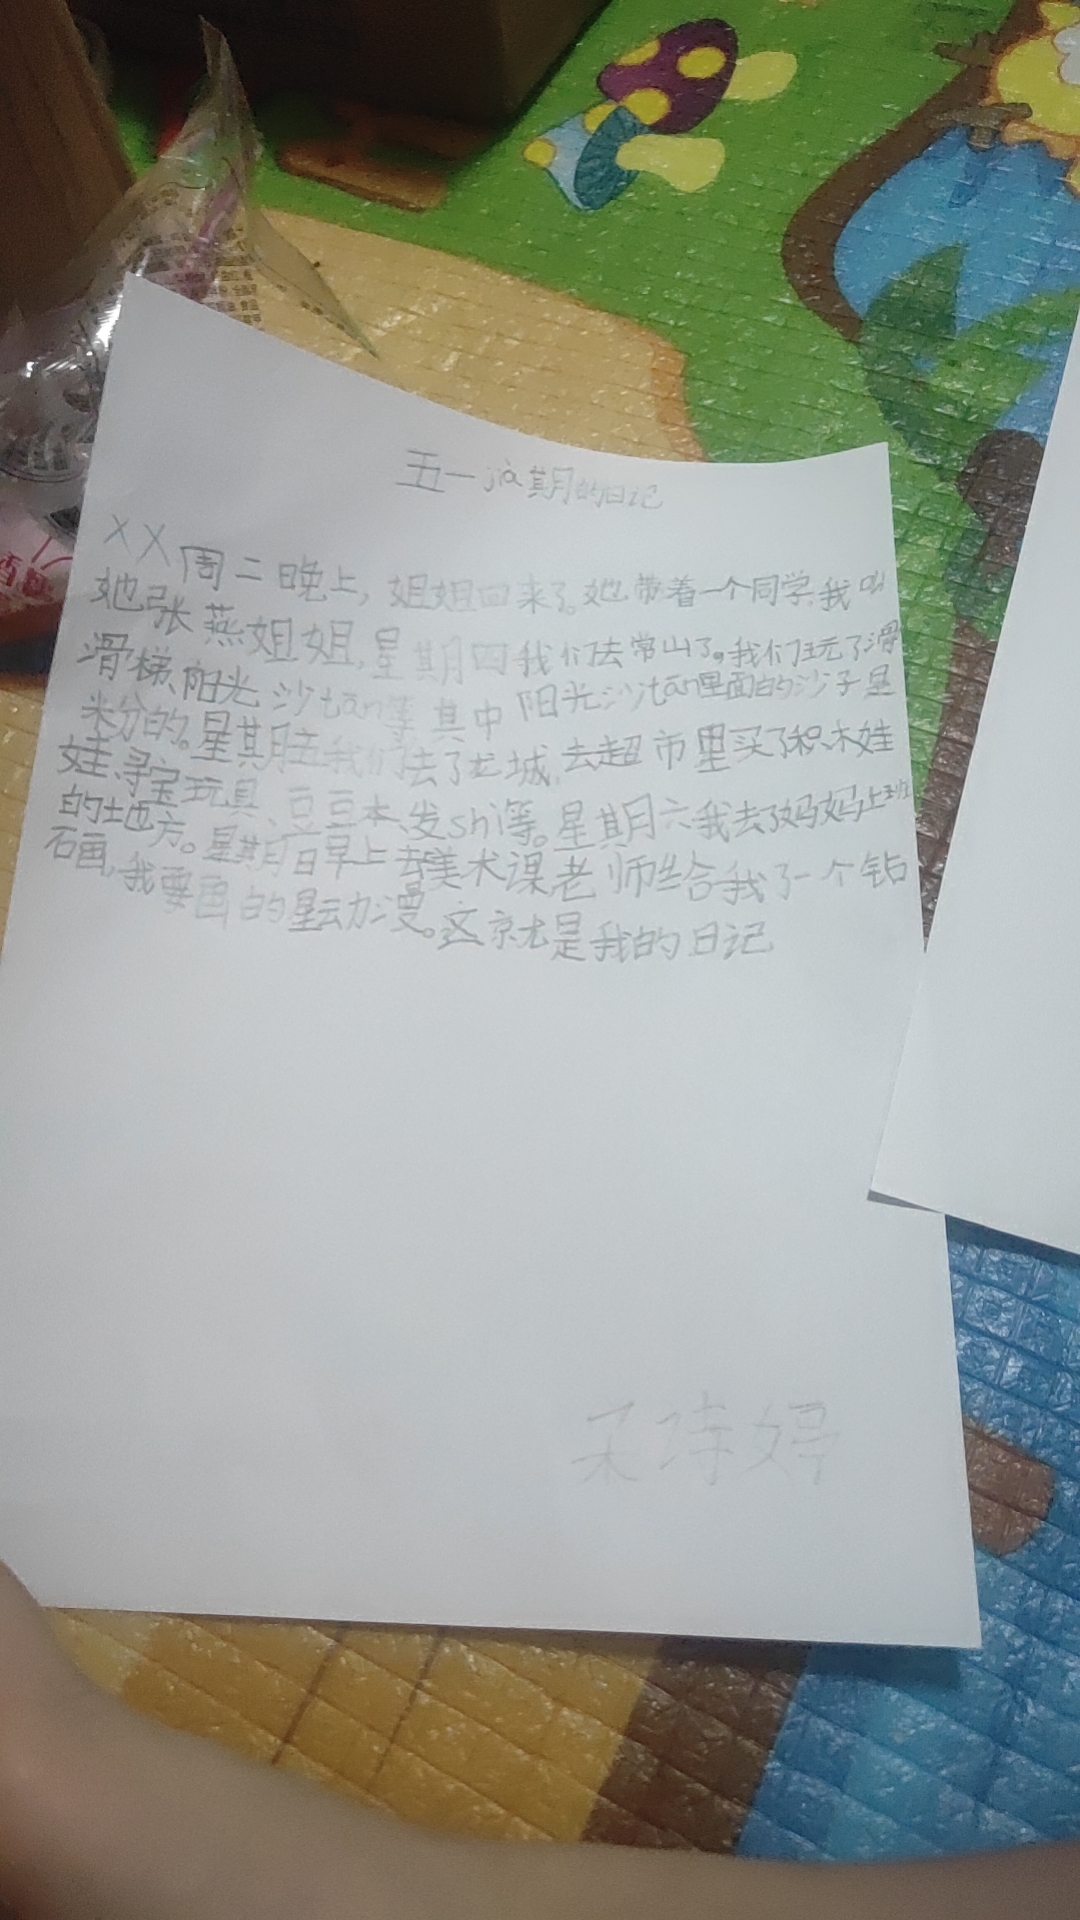 五一jià期的日记
XX周二晚上,姐姐回来了。她带着一个同学,我叫
她张燕姐姐,星期四我们去常山了。我们玩了滑
滑梯、阳光沙tān等其中阳光沙tān里面的沙子是
米分的。星期五我们去了龙城,去超市里买了积木娃
娃、寻宝玩具、豆豆本、发shi等。星期六我去了妈妈上班
的地方。星期日早上去美术课,老师给我了一个钻
石画,我要画的是动漫。这就是我的日记
诗婷